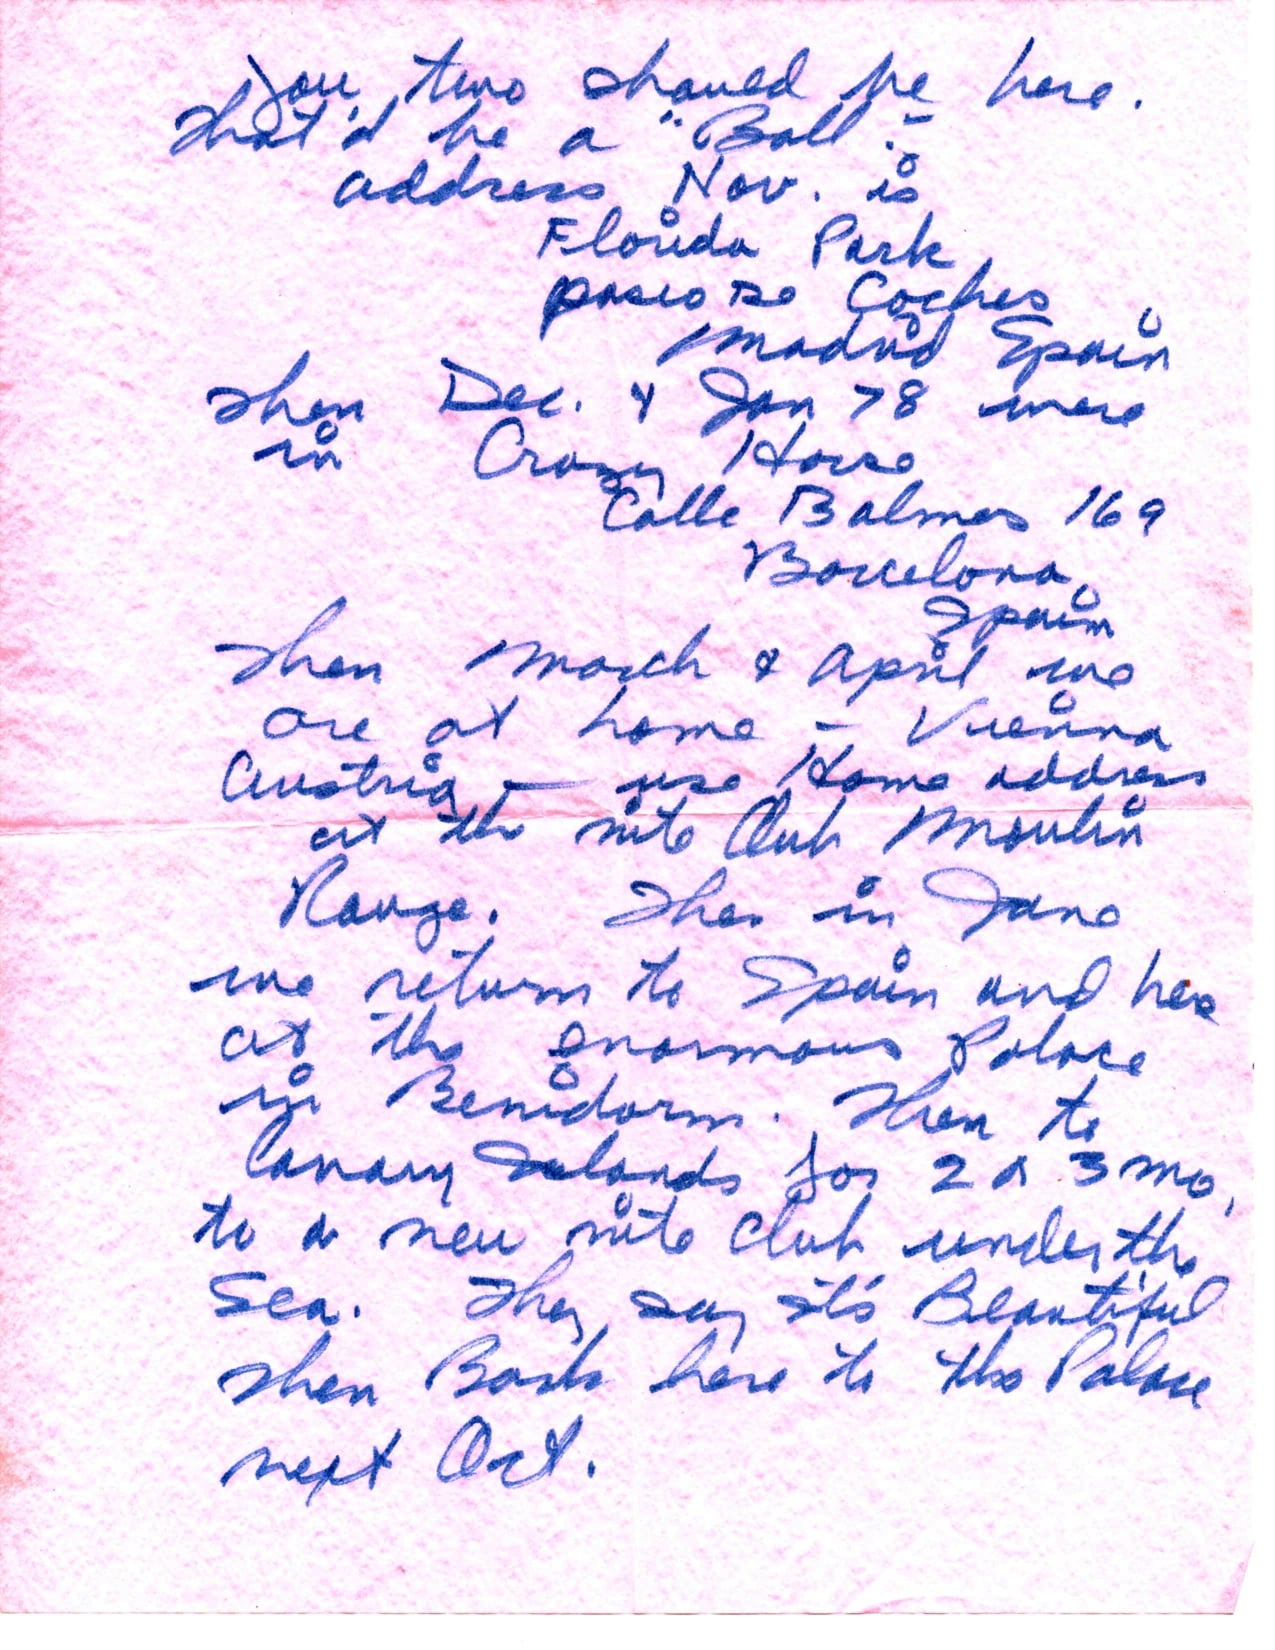 You two should be here.
That'd be a "Ball" -
address Nov. is
Florida Park
paseo de Coches
Madrid Spain
Then Dec. & Jan 78 were
in Crazy Horse
Calle Balmes 169
Barcelona,
Spain
Then March & April we
are at home - Vienna
Austria - use Home address
at the nite Club Moulin
Rouge. Then in June
we return to Spain and here
at the enormous Palace
in Benidorm. Then to
Canary Islands for 2 or 3 mo,
to a new nite club under the
Sea. They say it's Beautiful
then Back here to the Palace
next Oct.